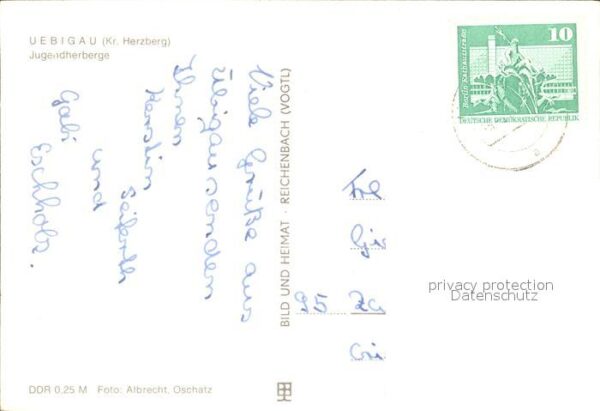 UEBIGAU (Kr. Herzberg)
Jugendherberge
Viele Grüße aus
Übigau senden
Ihnen
Kerstin Seiferth
und
Gabi
Eschholz.
BILD UND HEIMAT · REICHENBACH (VOGTL)
10
Berlin, Rathausstraße
DEUTSCHE DEMOKRATISCHE REPUBLIK
95
privacy protection
Datenschutz
DDR 0,25 M Foto: Albrecht, Oschatz